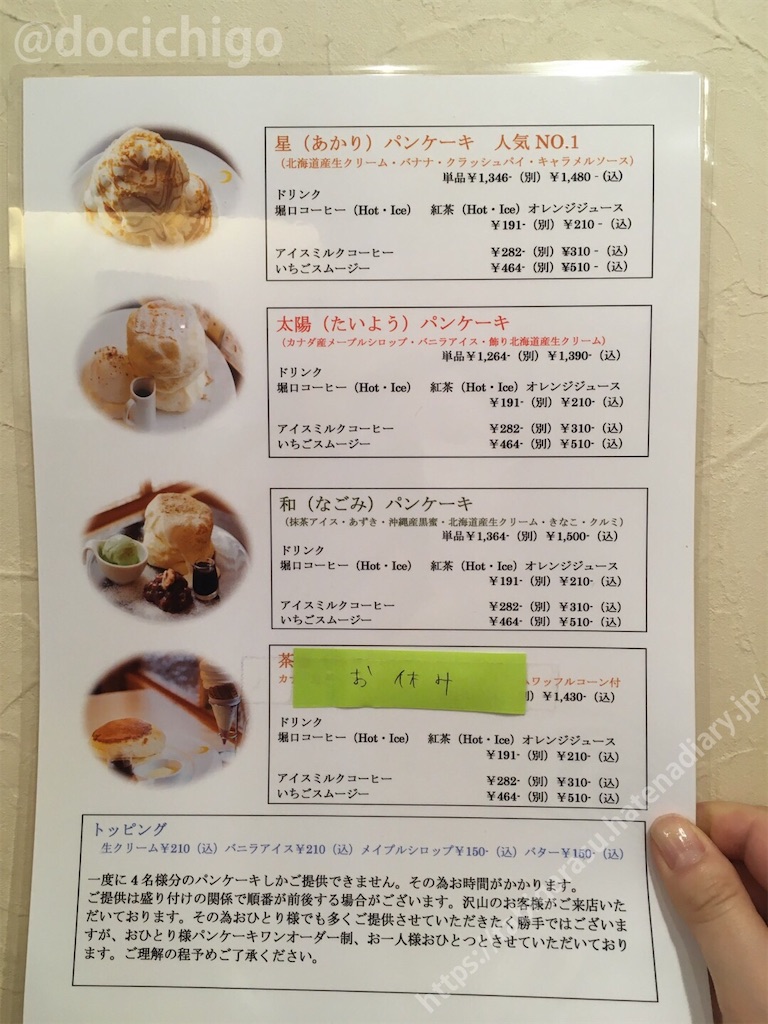 @docichigo
星（あかり）パンケーキ　人気 NO.1
（北海道産生クリーム・バナナ・クラッシュパイ・キャラメルソース）
単品￥1,346-（別）￥1,480 -（込）
ドリンク
堀口コーヒー（Hot・Ice）　紅茶（Hot・Ice）オレンジジュース
￥191-（別）￥210 -（込）
アイスミルクコーヒー　￥282-（別）¥310 -（込）
いちごスムージー　￥464-（別）¥510 -（込）
太陽（たいよう）パンケーキ
（カナダ産メープルシロップ・バニラアイス・飾り北海道産生クリーム）
単品￥1,264-（別）￥1,390-（込）
ドリンク
堀口コーヒー（Hot・Ice）　紅茶（Hot・Ice）オレンジジュース
￥191-（別）￥210-（込）
アイスミルクコーヒー　￥282-（別）￥310-（込）
いちごスムージー　￥464-（別）￥510-（込）
和（なごみ）パンケーキ
（抹茶アイス・あずき・沖縄産黒蜜・北海道産生クリーム・きなこ・クルミ）
単品￥1,364-（別）￥1,500-（込）
ドリンク
堀口コーヒー（Hot・Ice）　紅茶（Hot・Ice）オレンジジュース
￥191-（別）￥210-（込）
アイスミルクコーヒー　￥282-（別）￥310-（込）
いちごスムージー　￥464-（別）￥510-（込）
茶
お休み
ワッフルコーン付
別）￥1,430-（込）
ドリンク
堀口コーヒー（Hot・Ice）　紅茶（Hot・Ice）オレンジジュース
￥191-（別）￥210-（込）
アイスミルクコーヒー　￥282-（別）￥310-（込）
いちごスムージー　￥464-（別）￥510-（込）
トッピング
生クリーム￥210（込）バニラアイス￥210（込）メイプルシロップ￥150-（込）バター￥150-（込）
一度に４名様分のパンケーキしかご提供できません。その為お時間がかかります。
ご提供は盛り付けの関係で順番が前後する場合がございます。沢山のお客様がご来店いた
だいております。その為おひとり様でも多くご提供させていただきたく勝手ではございま
すが、おひとり様パンケーキワンオーダー制、お一人様おひとつとさせていただいており
ます。ご理解の程予めご了承ください。